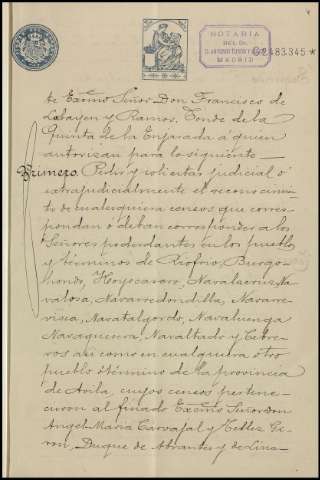 NOTARIA
DEL DR.
MADRID
2483.345 *
te Excmo Señor Don Francisco de
y Ramos. Conde de la
Quinta de la Enjarada á quien
autorizan para lo siguiente
Primero. Pedir y solicitar judicial ó
extrajudicialmente el reconocimi-
to de cualesquiera censos que corres-
pondan ó deban corresponder á los
Señores poderdantes en los pueblos
y términos de Riofrio, Burgo-
hondo, Hoyocasero, Navalacruz, Na-
valosa, Navarredondilla, Navarre-
visca, Navatalgordo, Navaluenga
Navaquesera, Navaltado y Cebre-
ros así como en cualquiera otro
pueblo ó término de la provincia
de Avila, cuyos censos pertene-
cieron al finado Excmo Señor Don
Angel Maria Carvajal y Tellez Gi-
ron, Duque de Abrantes y de Lina-